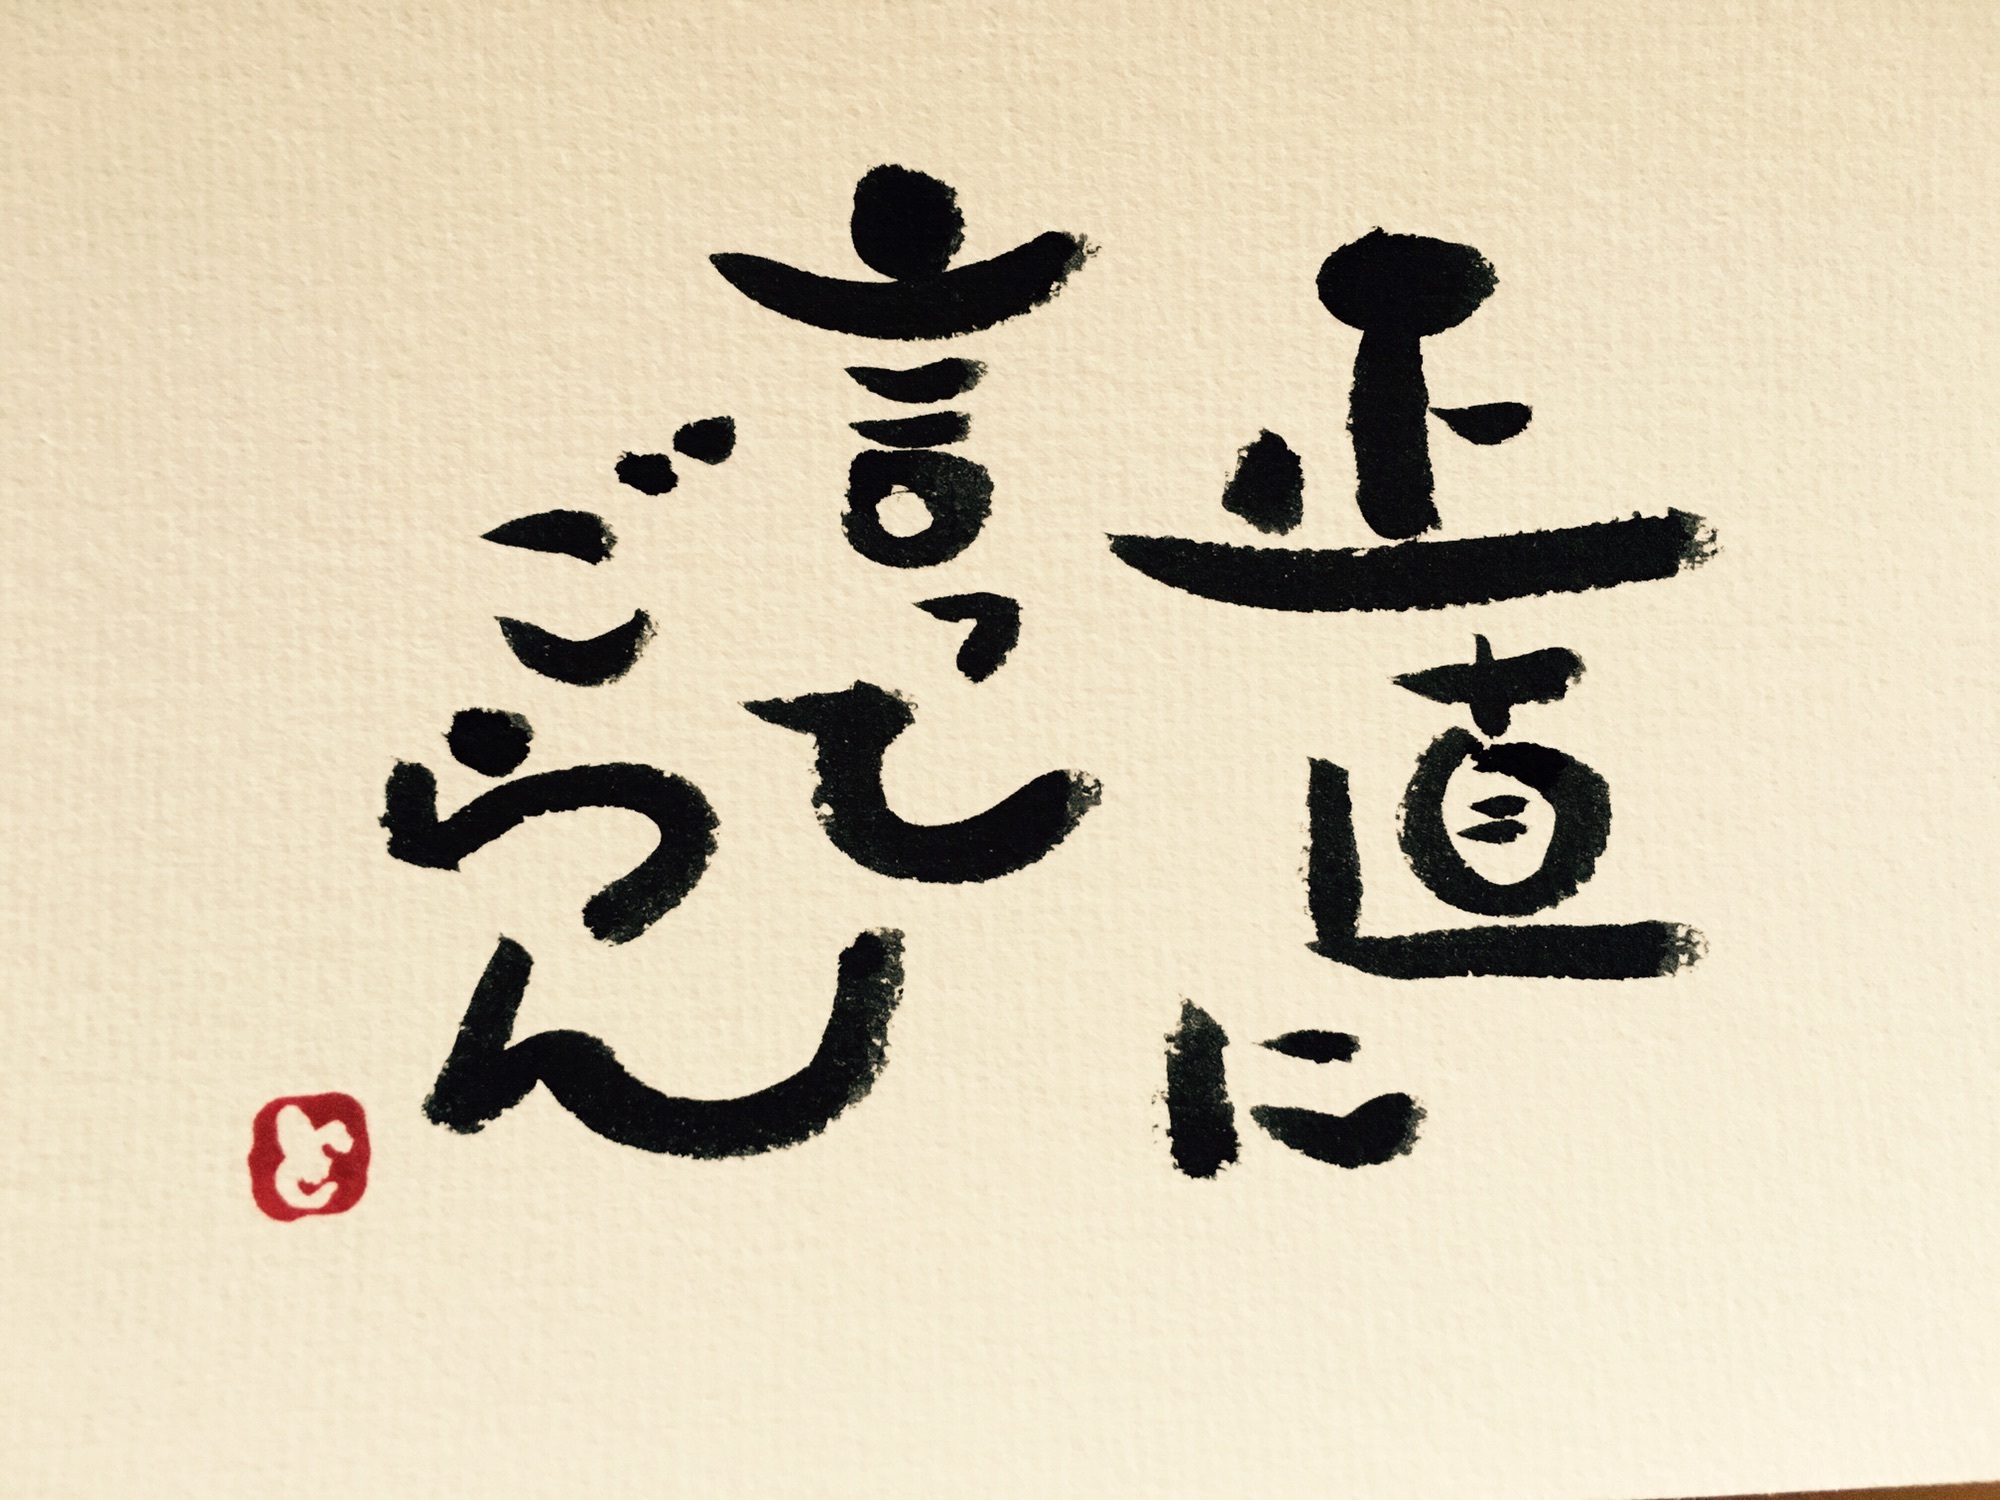 正直に
言って
ごらん